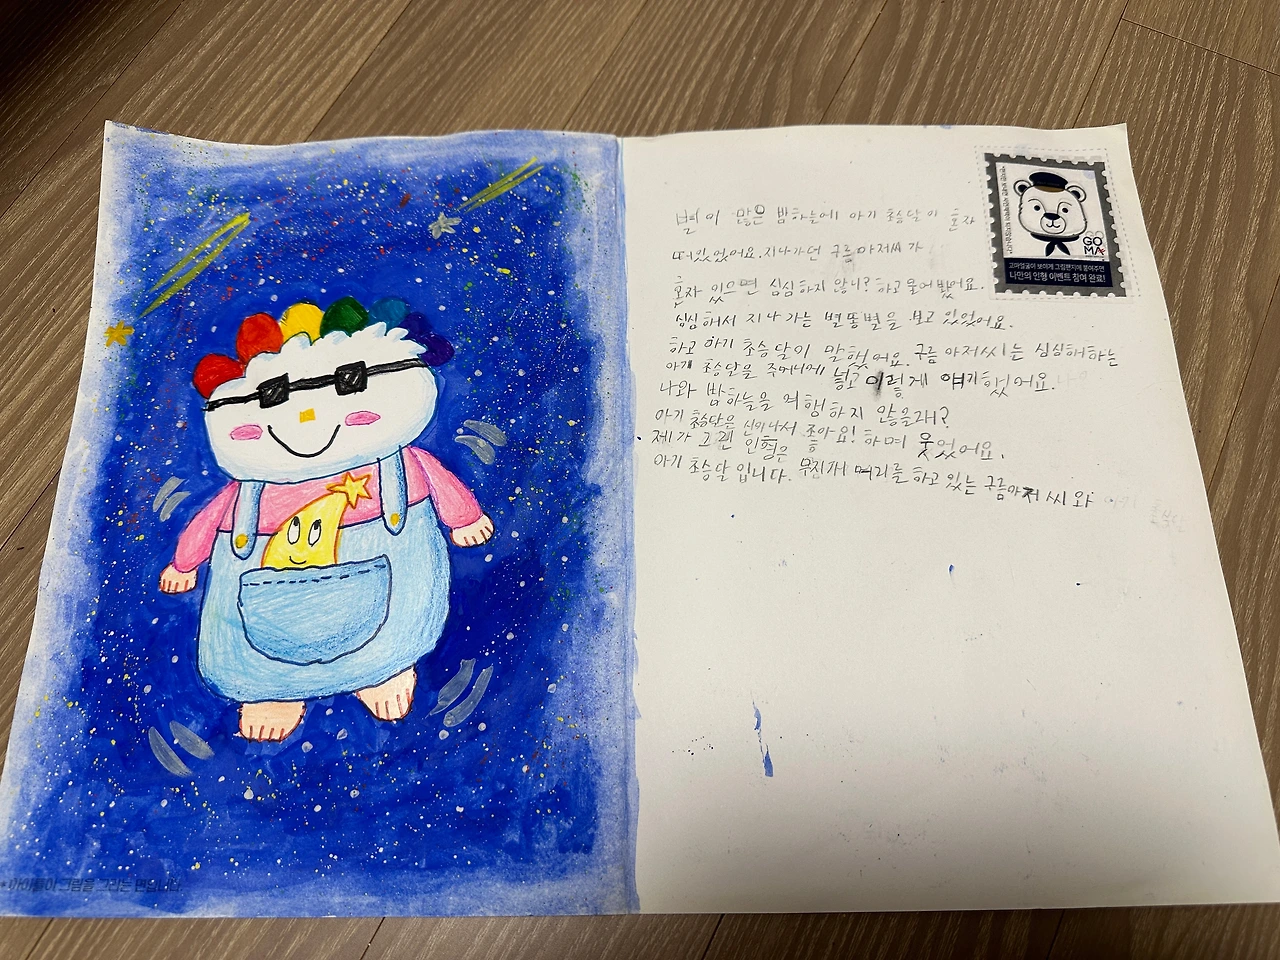 별이 많은 밤하늘에 아기 초승달이 혼자
떠있었어요.지나가던 구름아저씨가
혼자 있으면 심심하지 않니? 하고 물어봤어요.
심심해서 지나가는 별똥별을 보고 있었어요.
하고 아기 초승달이 말했어요. 구름아저씨는 심심해하는
아기 초승달을 주머니에 넣고 이렇게 얘기했어요.
나와 밤하늘을 여행하지 않을래?
아기 초승달은 신이나서 좋아요! 하며 웃었어요.
제가 그린 인형은
아기 초승달 입니다. 무지개 머리를 하고 있는 구름아저씨와
GO
MA
고마얼굴이 보이게 그림편지에 붙여주면
나만의 인형 이벤트 참여 완료!
* 아이들이 그림을 그리는 면입니다.